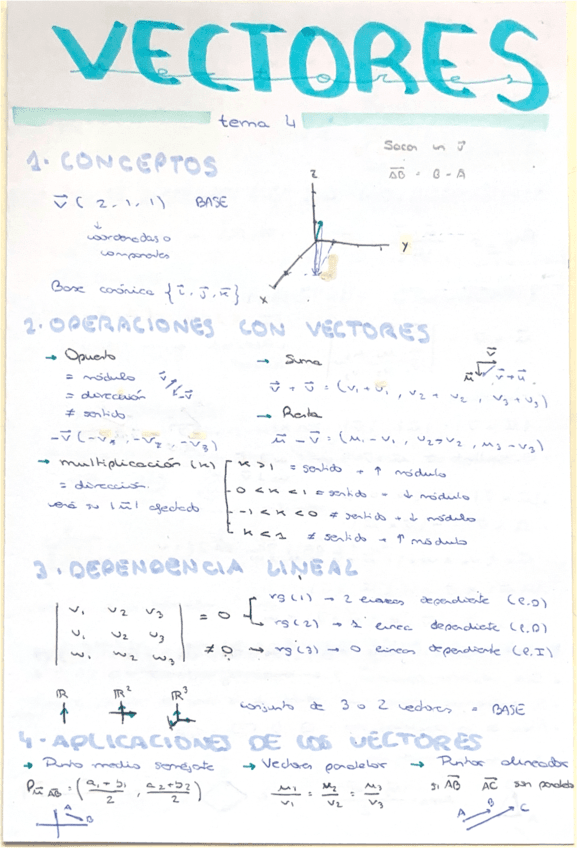 VECTORES
vectores
tema 4
Sacar un v⃗
AB⃗ = B - A
1. CONCEPTOS
v⃗ ( 2, 1, 1) BASE
coordenadas o
componentes
Base canónica { i⃗, j⃗, k⃗ }
z
y
x
2. OPERACIONES CON VECTORES
→ Opuesto
= módulo
= dirección
≠ sentido
v⃗ -v⃗
-v⃗ (-v₁, -v₂, -v₃)
→ Suma
v⃗ + v⃗ = (v₁+v₁, v₂ + v₂, v₃+v₃)
v⃗
u⃗ v⃗+u⃗
→ Resta
u⃗ - v⃗ = (u₁-v₁, u₂-v₂, u₃-v₃)
→ multiplicación (k)
= dirección
verá su |u⃗| afectado
k>1 = sentido + ↑ módulo
0 < k < 1 = sentido - ↓ módulo
-1 < k < 0 ≠ sentido + ↓ módulo
k < 1 ≠ sentido + ↑ módulo
3. DEPENDENCIA LINEAL
v₁ v₂ v₃
u₁ u₂ u₃
w₁ w₂ w₃
= 0
rg(1) → 2 dependiente (l.D)
rg(2) → 1 dependiente (l.D)
≠ 0 → rg(3) → 0 dependiente (l.I)
ℝ ℝ² ℝ³
conjunto de 3 o 2 vectores = BASE
4. APLICACIONES DE LOS VECTORES
→ Punto medio
P = (a₁+b₁/2, a₂+b₂/2)
A
B
→ Vectores paralelos
u₁/v₁ = u₂/v₂ = u₃/v₃
→ Puntos alineados
si AB⃗ AC⃗ son paralelos
A B C